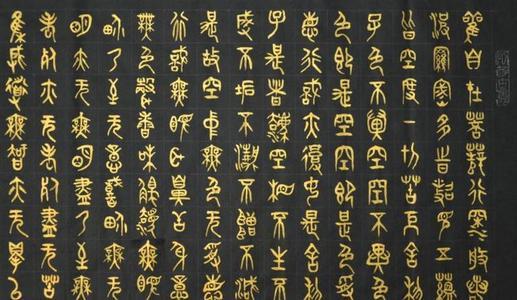 觀自在菩薩行深般若
波羅蜜多時照見五蘊
皆空度一切苦厄舍利
子色不異空空不異色
色即是空空即是色受
想行識亦復如是舍利
子是諸法空相不生不
滅不垢不淨不增不減
是故空中無色無受想
行識無眼耳鼻舌身意
無色聲香味觸法無眼
界乃至無意識界無無
明亦無無明盡乃至無
老死亦無老死盡無苦
集滅道無智亦無得以